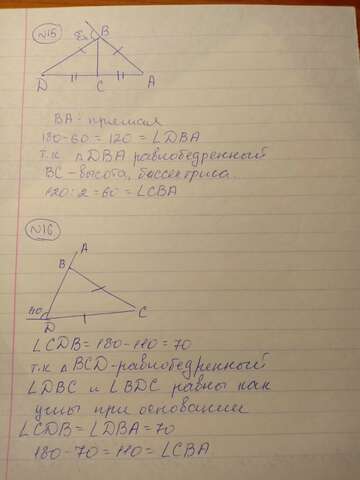 N15
B
D
C
A
BA - прямая
180-60 = 120 = ∠DBA
т.к △DBA равнобедренный
BC - высота, биссектриса.
120:2 = 60 = ∠CBA
N16
A
B
C
D
∠CDB = 180-110 = 70
т.к △BCD - равнобедренный
∠DBC и ∠BDC равны как
углы при основании
∠CDB = ∠DBA = 70
180-70 = 110 = ∠CBA